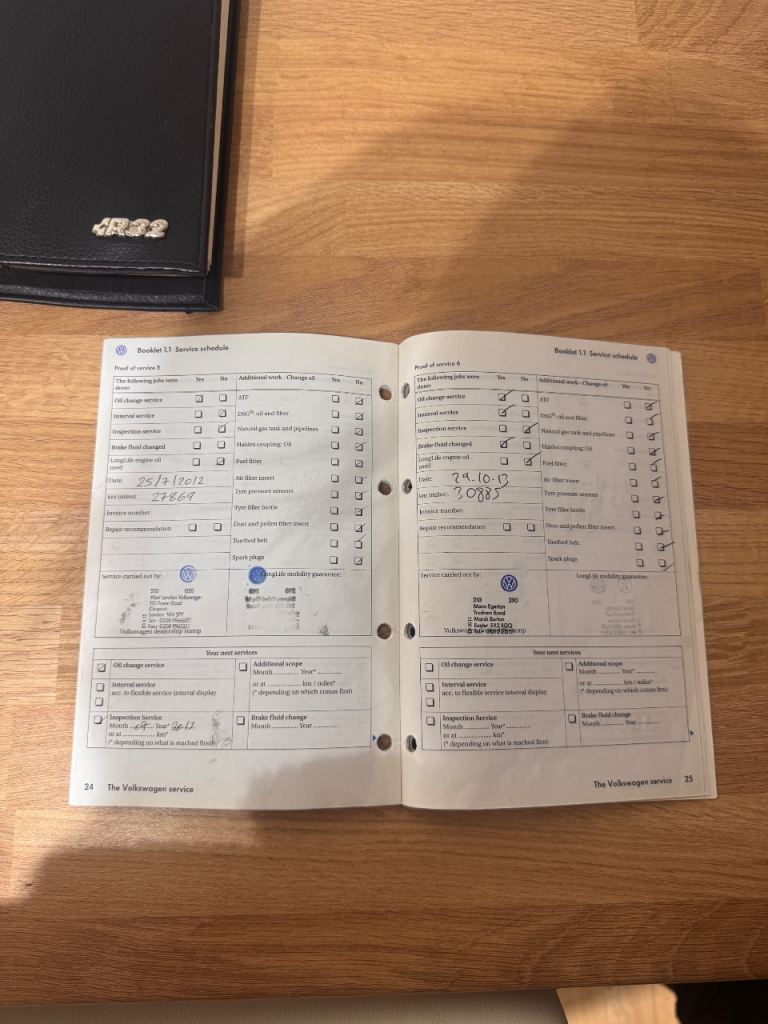 R32
Booklet 1.1 Service schedule
Proof of service 5
The following jobs were done:
Yes No
Additional work - Change of:
Yes No
Oil change service
ATF
Interval service
DSG®: oil and filter
Inspection service
Natural gas tank and pipelines
Brake fluid changed
Haldex coupling: Oil
LongLife engine oil
used
Fuel filter
Date: 25/7/2012
Air filter insert
km (miles): 27869
Tyre pressure sensors
Invoice number:
Tyre filler bottle
Repair recommendation
Dust and pollen filter insert
Toothed belt
Spark plugs
Service carried out by:
LongLife mobility guarantee:
210 020
West London Volkswagen
Chiswick
London W4
Volkswagen dealership stamp
Your next services
Oil change service
Additional scope
Month Year*
Interval service
acc. to flexible service interval display
or at km / miles*
(* depending on which comes first)
Inspection Service
Month Year* 2012
or at km*
(* depending on what is reached first)
Brake fluid change
Month Year
24 The Volkswagen service
Booklet 1.1 Service schedule
Proof of service 6
The following jobs were
done:
Yes No
Additional work - Change of:
Yes No
Oil change service
ATF
Interval service
DSG®: oil and filter
Inspection service
Natural gas tank and pipelines
Brake fluid changed
Haldex coupling: Oil
LongLife engine oil
used
Fuel filter
Date: 29-10-13
Air filter insert
km (miles): 30885
Tyre pressure sensors
Invoice number:
Tyre filler bottle
Repair recommendation
Dust and pollen filter insert
Toothed belt
Spark plugs
Service carried out by:
LongLife mobility guarantee:
210 390
Mann Egerton
Trusham Road
Marsh Barton
Exeter EX2 8QQ
Volkswagen dealership stamp
Your next services
Oil change service
Additional scope
Month Year*
Interval service
acc. to flexible service interval display
or at km / miles*
(* depending on which comes first)
Inspection Service
Month Year*
or at km*
(* depending on what is reached first)
Brake fluid change
Month Year
The Volkswagen service 25